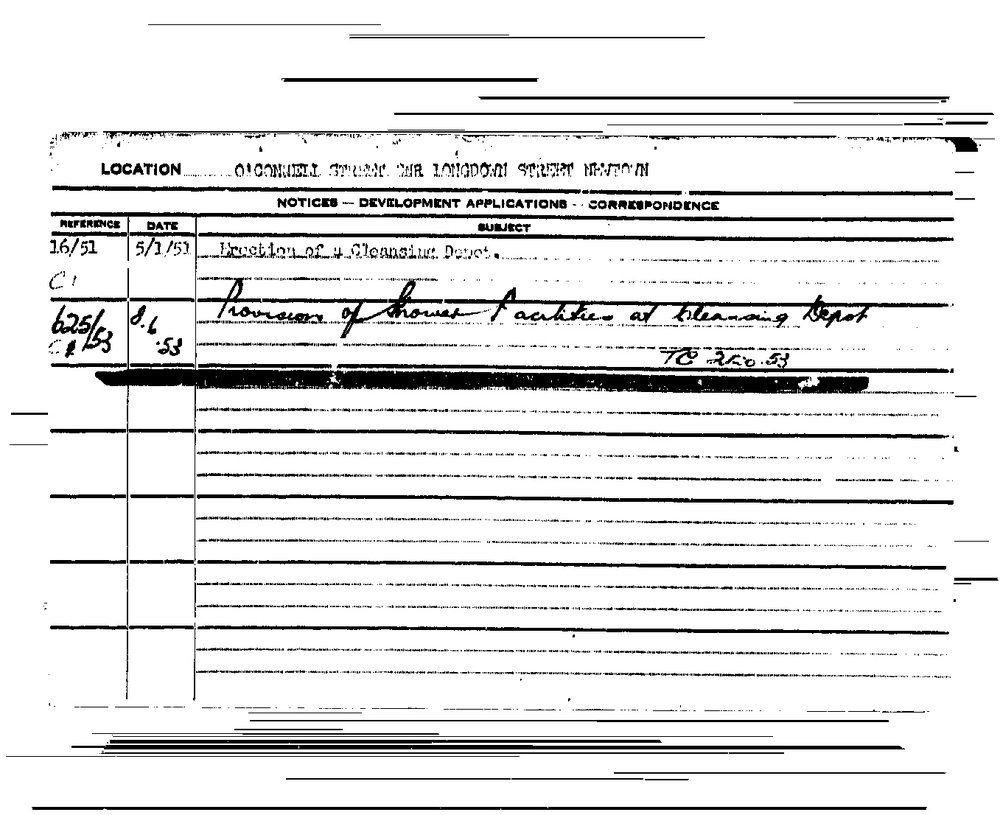 LOCATION O'CONNELL STREET CNR LONGDOWN STREET NEWTOWN
NOTICES — DEVELOPMENT APPLICATIONS - CORRESPONDENCE
REFERENCE DATE SUBJECT
16/51 5/1/51 Erection of a Cleansing Depot.
C1
625/53 8.6.53 Provision of Shower Facilities at Cleansing Depot
TC